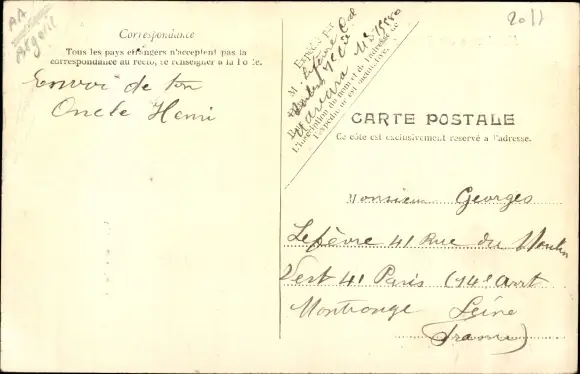 AA
Algérie
Correspondance
Tous les pays étrangers n'acceptent pas la
correspondance au recto, se renseigner à la Poste.
Envoi de ton
Oncle Henri
Expédié par
M.
L'inscription du nom et de l'adresse de
l'expéditeur est facultative.
2011
CARTE POSTALE
Ce côté est exclusivement réservé à l'adresse.
Monsieur Georges
Lefèvre 41 Rue du Moulin
Vert 41 Paris (14e arrt
Montrouge Seine
(France)